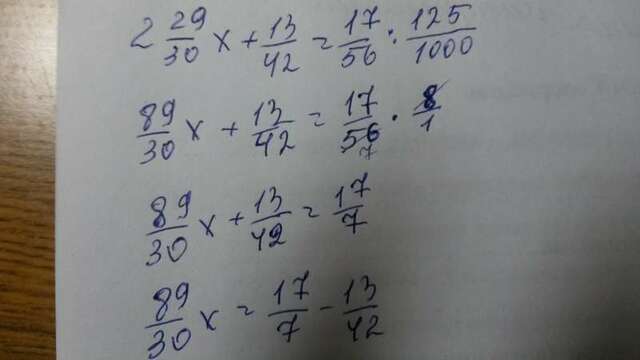 2 29/30 x + 13/42 = 17/56 : 125/1000
89/30 x + 13/42 = 17/56 7 · 8/1
89/30 x + 13/42 = 17/7
89/30 x = 17/7 - 13/42